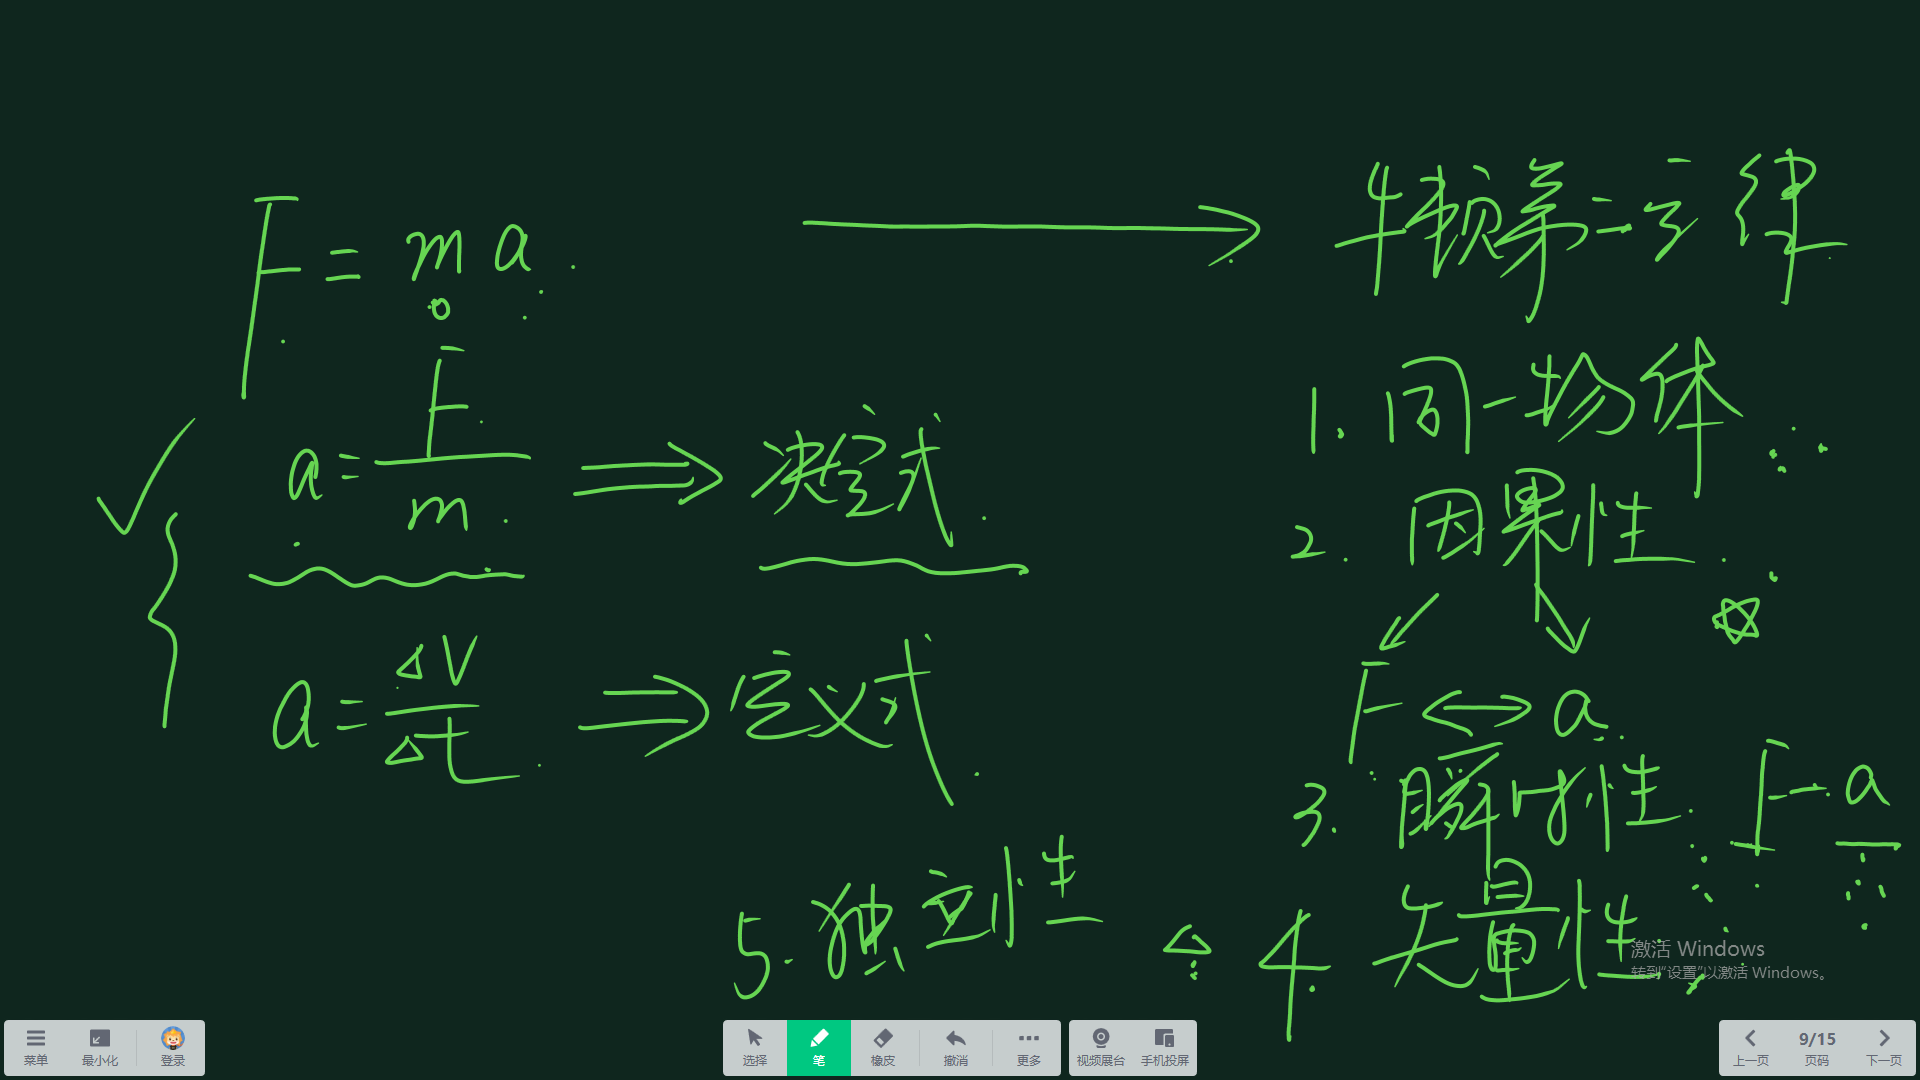 F = ma. → 牛顿第二定律
a = F/m ⇒ 决定式.
a = ΔV/Δt ⇒ 定义式.
1. 同一物体
2. 因果性
F ⇔ a
3. 瞬时性. F - a
4. 矢量性
5. 独立性
激活 Windows
转到“设置”以激活 Windows。
菜单 最小化 登录
选择 笔 橡皮 撤消 更多
视频展台 手机投屏
上一页 9/15 页码 下一页